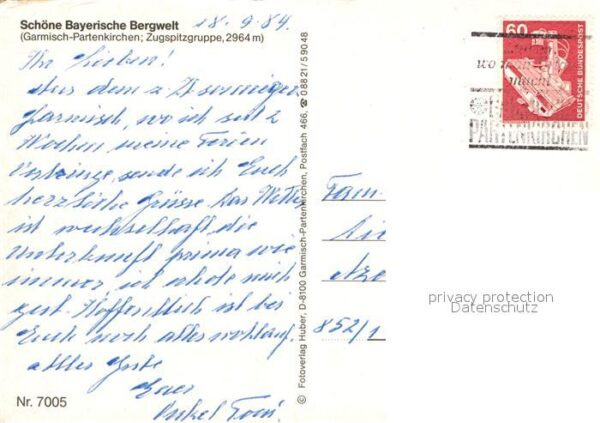 Schöne Bayerische Bergwelt
(Garmisch-Partenkirchen; Zugspitzgruppe, 2964 m)
18.9.84.
Ihr Lieben!
Aus dem z. Zt. sonnigen
Garmisch, wo ich seit 2
Wochen meine Ferien
verbringe, sende ich Euch
herzliche Grüsse. Das Wetter
ist wechselhaft, die
Unterkunft prima wie
immer, ich erhole mich
gut. Hoffentlich ist bei
Euch noch alles wohlauf.
alles Gute
Euer
Onkel Toni
Nr. 7005
© Fotoverlag Huber, D-8100 Garmisch-Partenkirchen, Postfach 466, ☎ 08821/59048
60
DEUTSCHE BUNDESPOST
wo
macht
PARTENKIRCHEN
Fam.
852/1
privacy protection
Datenschutz